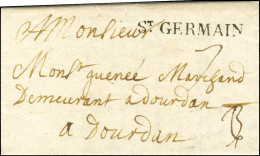 A Monsieur
ST GERMAIN
Monsr queneé Marchand
Demeurant a dourdan
a Dourdan